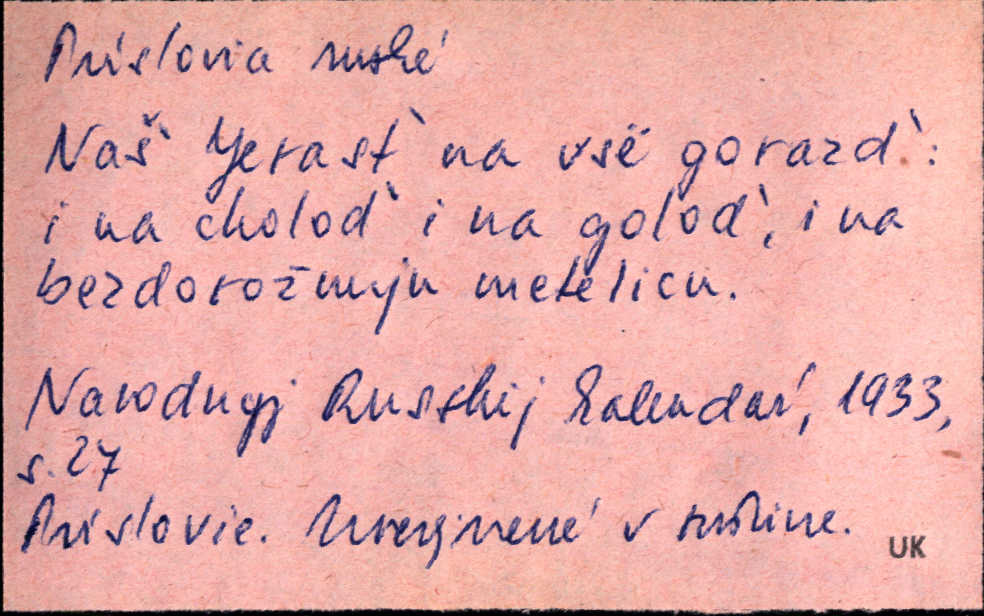 Príslovia ruské
Naš Yerast̀ na vsë gorazd̀:
i na cholod̀ i na golod̀, i na
bezdorožnuju metelicu.
Narodnyj Russkij Kalendaŕ, 1933,
s. 27
Príslovie. Uverejnené v ruštine.
UK